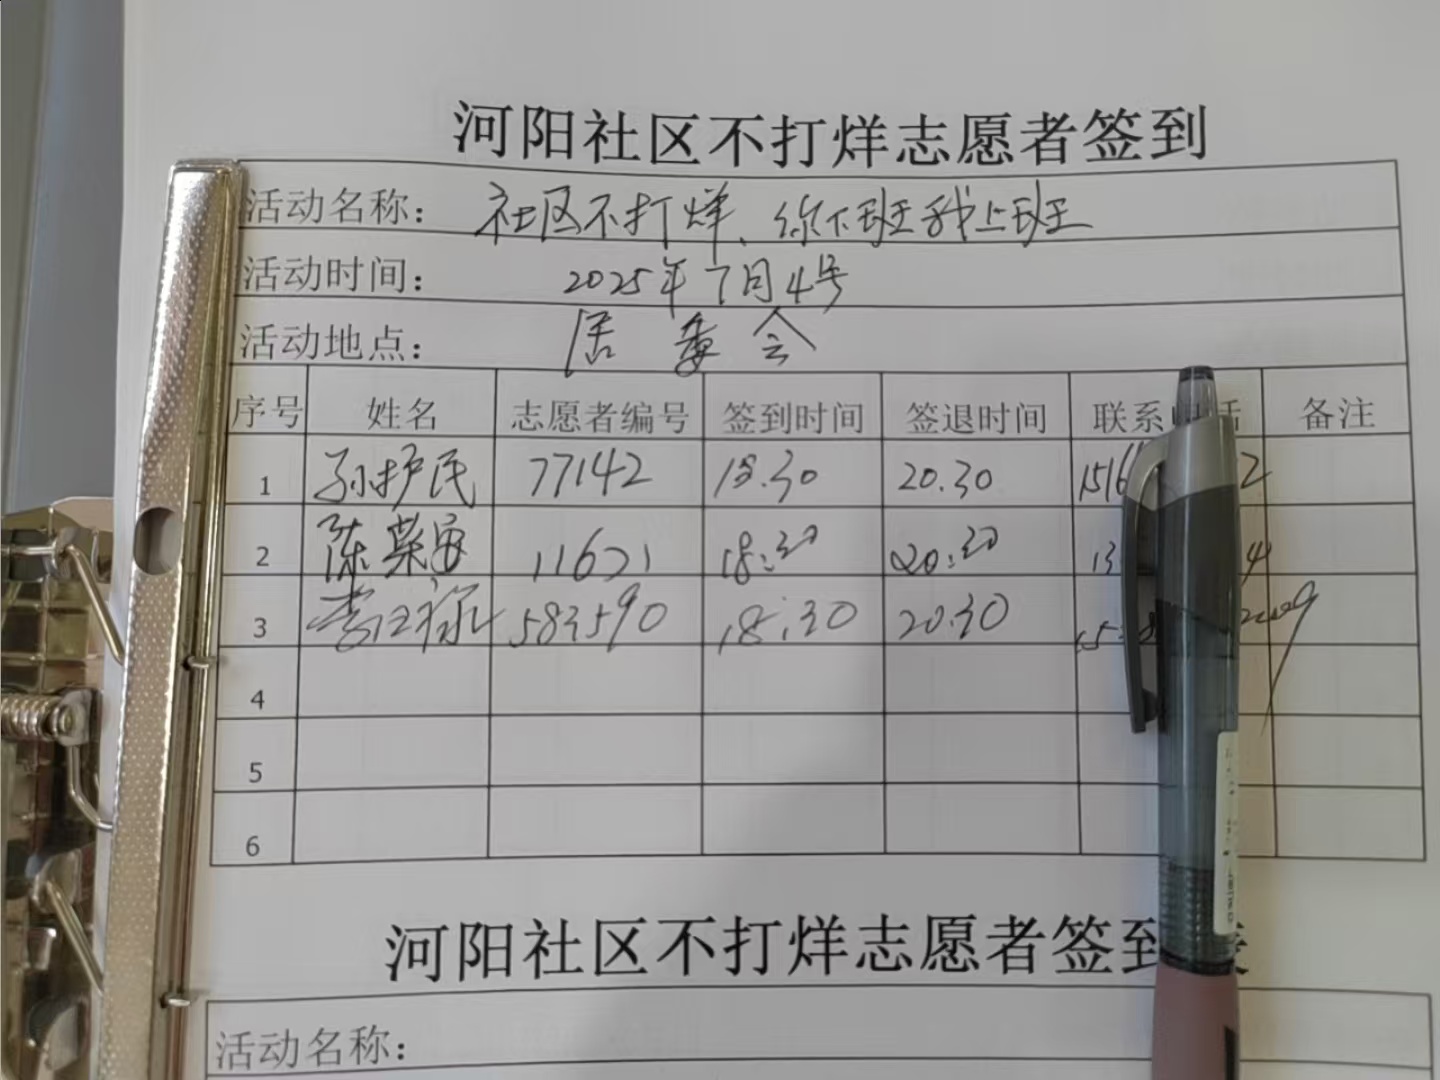 河阳社区不打烊志愿者签到
活动名称： 社区不打烊、你下班我上班
活动时间： 2025年7月4号
活动地点： 居委会
序号 姓名 志愿者编号 签到时间 签退时间 联系电话 备注
1 孙护民 77142 18.30 20.30 1516 2
2 陈荣 11671 18:30 20:30 13 4
3 583590 18:30 20.30 15
4
5
6
河阳社区不打烊志愿者签到表
活动名称：